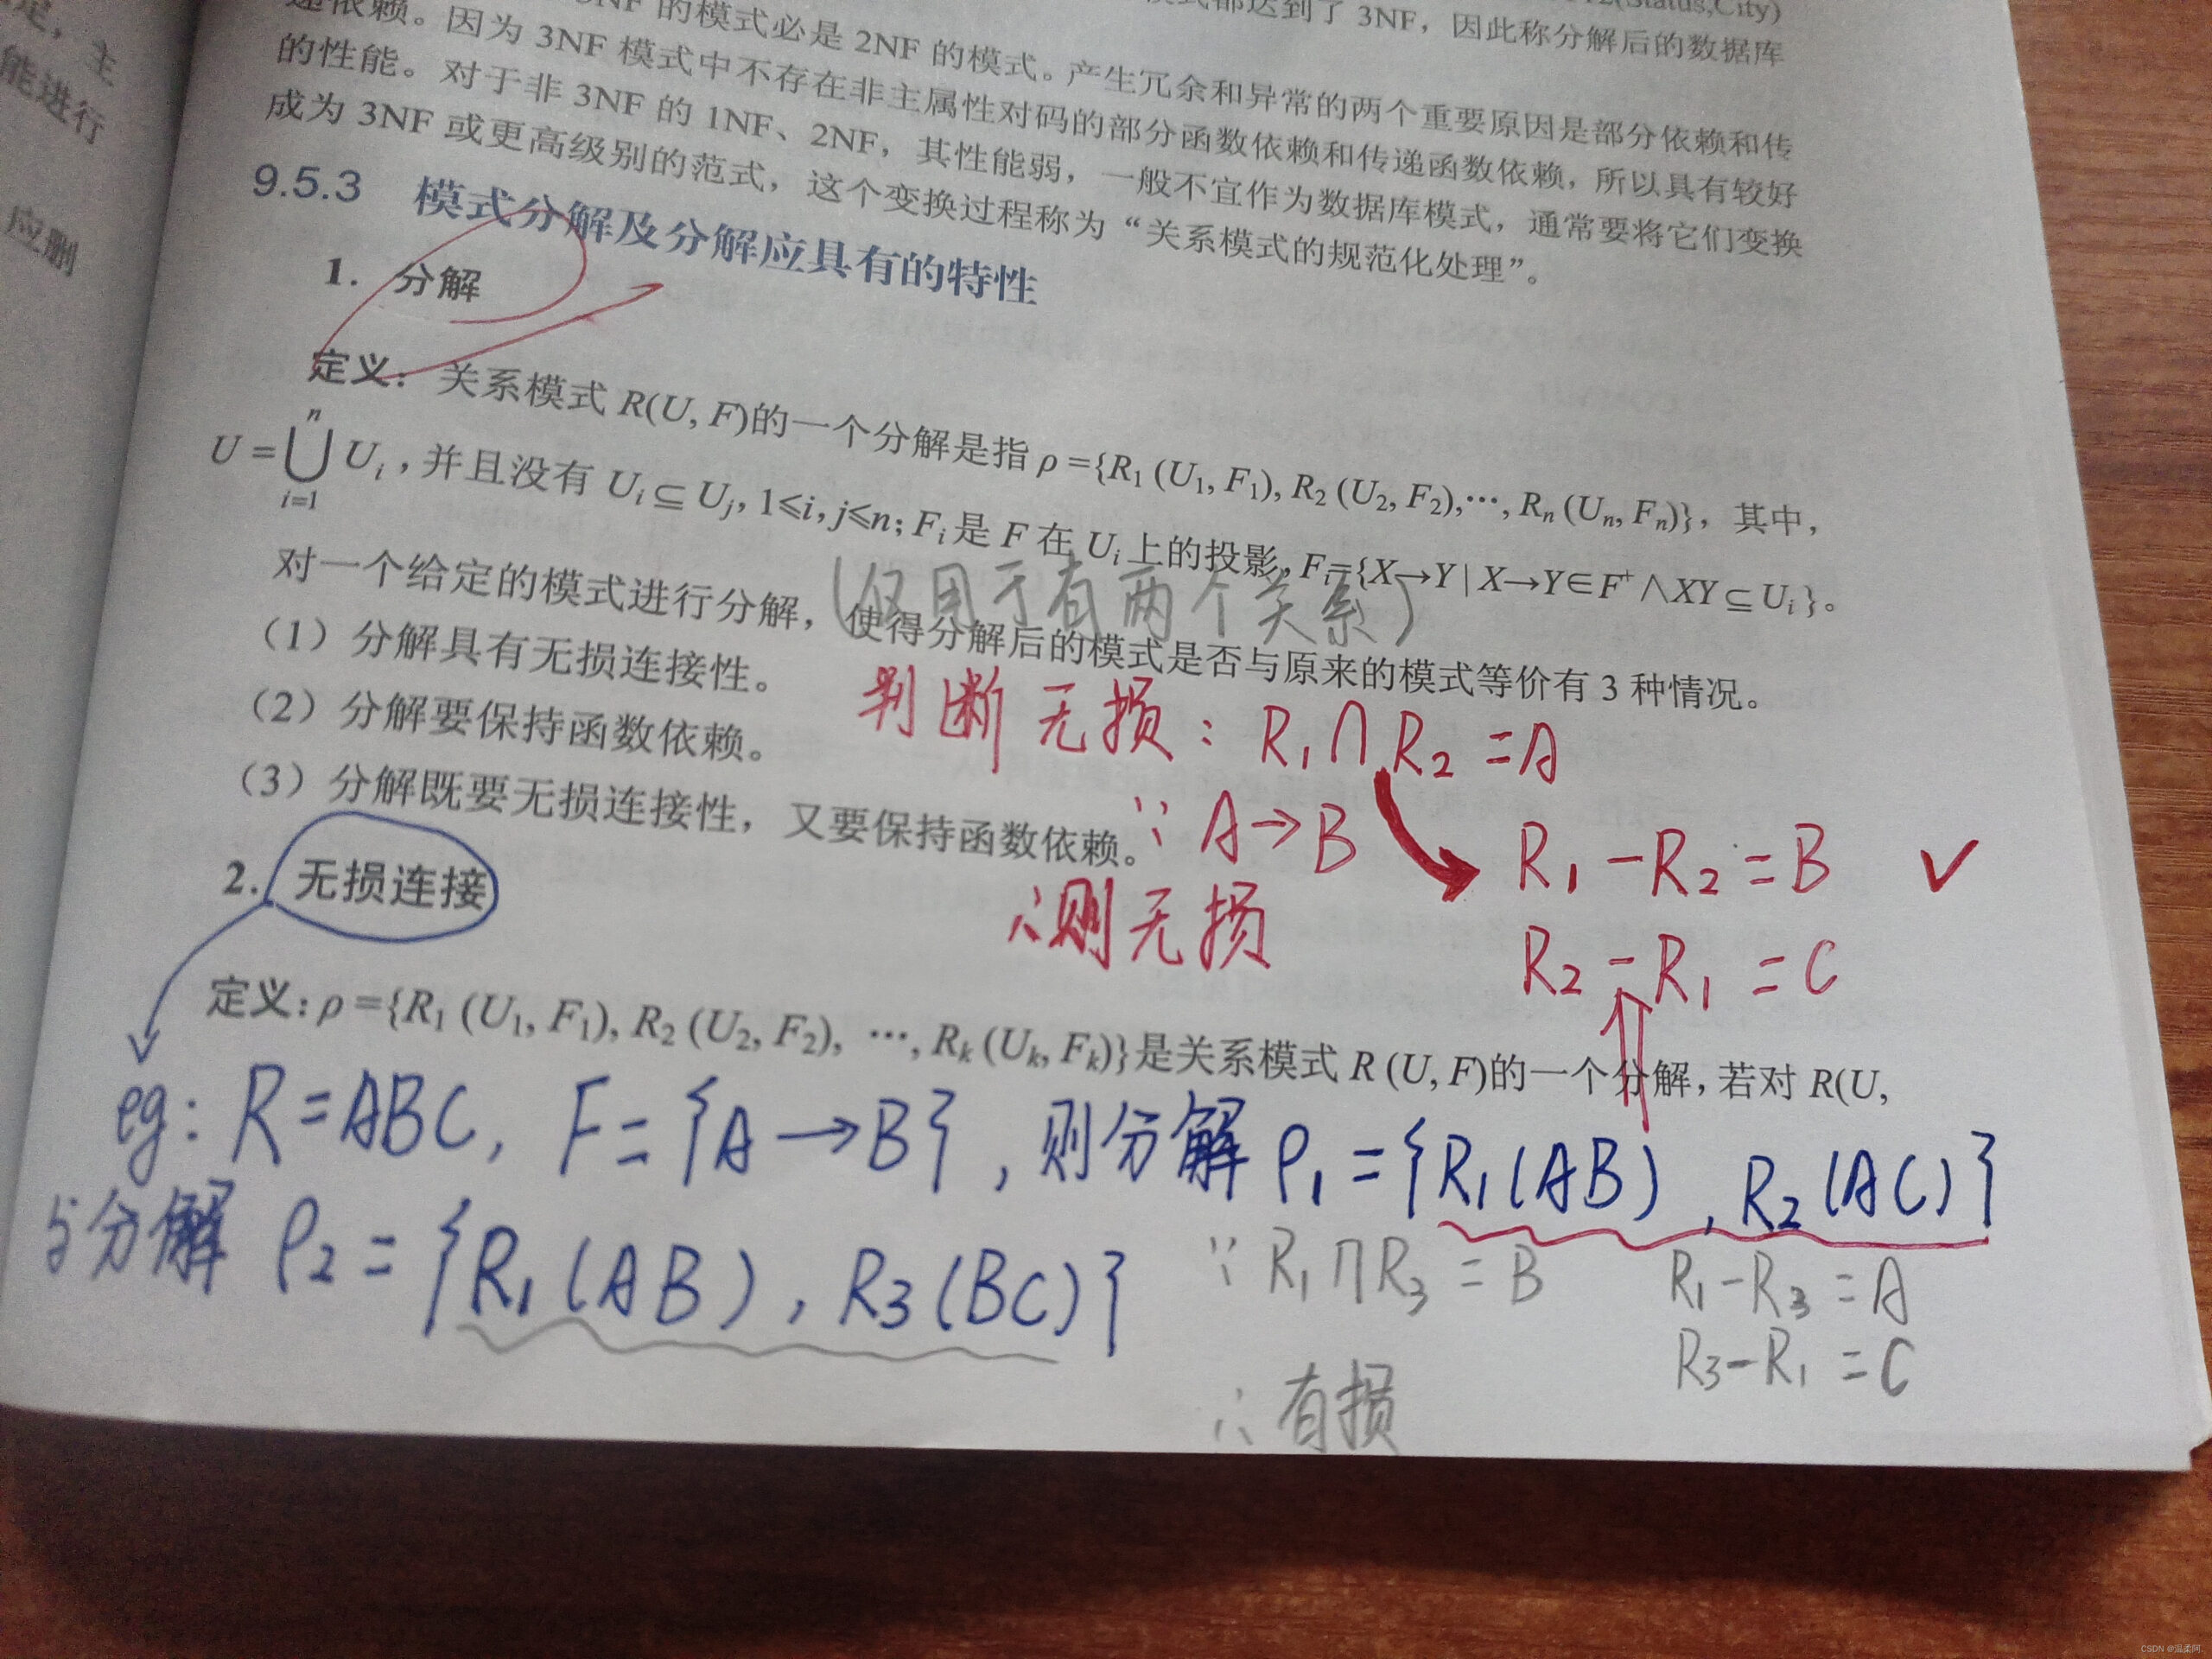 定，主
能进行
应删
(Status,City)
模式都达到了 3NF，因此称分解后的数据库
3NF 的模式必是 2NF 的模式。产生冗余和异常的两个重要原因是部分依赖和传
递依赖。因为 3NF 模式中不存在非主属性对码的部分函数依赖和传递函数依赖，所以具有较好
的性能。对于非 3NF 的 1NF、2NF，其性能弱，一般不宜作为数据库模式，通常要将它们变换
成为 3NF 或更高级别的范式，这个变换过程称为“关系模式的规范化处理”。
9.5.3 模式分解及分解应具有的特性
1. 分解
定义：关系模式 R(U, F)的一个分解是指 ρ={R₁ (U₁, F₁), R₂ (U₂, F₂),…, Rₙ (Uₙ, Fₙ)}，其中，
U = ⋃ⁿᵢ₌₁ Uᵢ，并且没有 Uᵢ⊆Uⱼ，1≤i, j≤n; Fᵢ是 F 在 Uᵢ上的投影, Fᵢ={X→Y | X→Y∈F⁺∧XY⊆Uᵢ}。
(仅用于有两个关系)
对一个给定的模式进行分解，使得分解后的模式是否与原来的模式等价有 3 种情况。
（1）分解具有无损连接性。
（2）分解要保持函数依赖。
（3）分解既要无损连接性，又要保持函数依赖。
判断无损：R₁∩R₂=A
∵A→B
R₁-R₂=B ✓
∴则无损
R₂-R₁=C
2. 无损连接
定义：ρ={R₁ (U₁, F₁), R₂ (U₂, F₂), …, Rₖ (Uₖ, Fₖ)}是关系模式 R (U, F)的一个分解，若对 R(U,
eg：R=ABC，F={A→B}，则分解ρ₁={R₁(AB)，R₂(AC)}
与分解 ρ₂={R₁(AB)，R₃(BC)}
∵R₁∩R₃=B R₁-R₃=A
R₃-R₁=C
∴有损
CSDN @温柔阿.